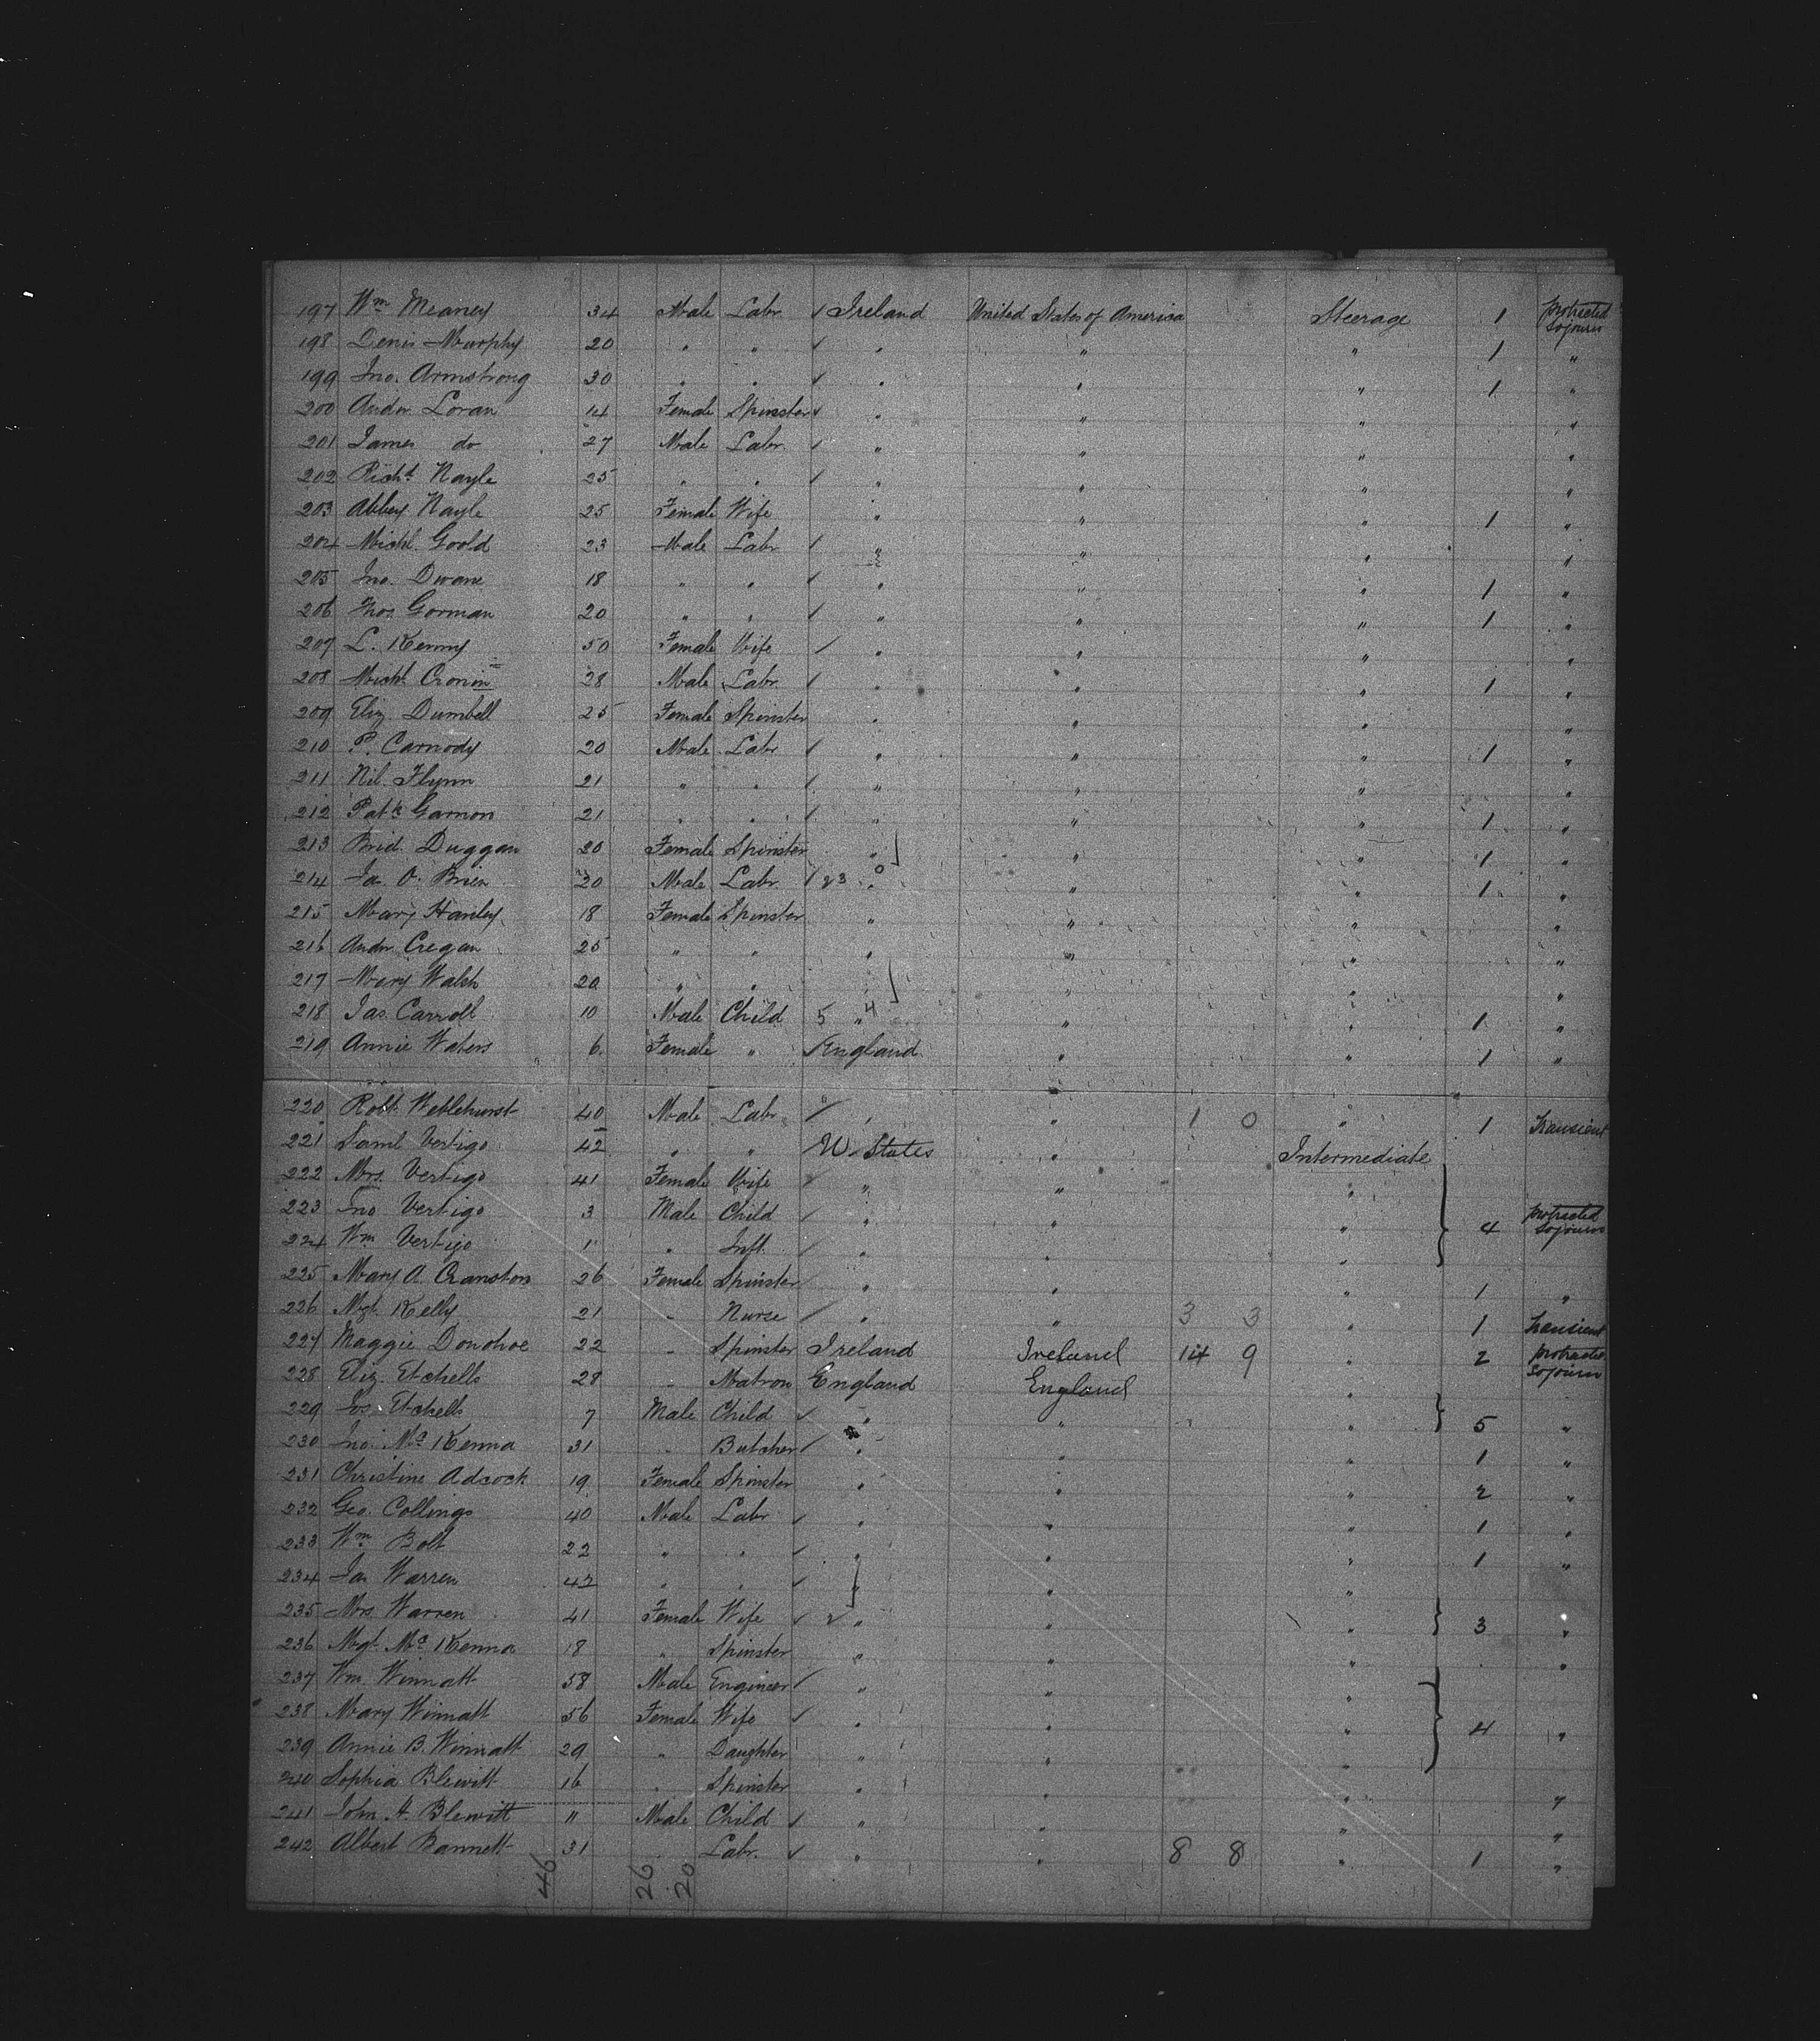 197 Wm Meaney 34 Male Labr / Ireland United States of America Steerage 1 protracted sojourn
198 Denis Murphy 20 " " / " " " 1 "
199 Jno. Armstrong 30 " " / " " " 1 "
200 Andw Loran 14 Female Spinster / " " " "
201 James do 27 Male Labr / " " " "
202 Richd Nagle 25 " " / " " " "
203 Abbey Nagle 25 Female Wife " " " 1 "
204 Michl. Goold 23 Male Labr / " " " "
205 Jno. Dwane 18 " " / " " " 1 "
206 Thos Gorman 20 " " / " " " 1 "
207 L. Kenny 50 Female Wife / " " " "
208 Michl Cronin 28 Male Labr / " " " 1 "
209 Eliz. Dumbell 25 Female Spinster " " " "
210 P. Carmody 20 Male Labr / " " " 1 "
211 Flynn 21 " " / " " " "
212 Patk Garnon 21 " " / " " " 1 "
213 Brid. Duggan 20 Female Spinster " " " 1 "
214 Ja. O. Brien 20 Male Labr / 23 " " " 1 "
215 Mary Hanley 18 Female Spinster " " " "
216 Andw. Cregan 25 " " " " " "
217 Mary Walsh 20 " " " " " "
218 Jas. Carroll 10 Male Child 5 " 4 " " 1 "
219 Annie Waters 6 Female " / England " " 1 "
220 Robt. 40 Male Labr / " " 1 0 " 1 Transient
221 Saml Vertigo 42 " " / U. States " Intermediate
222 Mrs. Vertigo 41 Female Wife / " " "
223 Jno Vertigo 3 Male Child / " " " 4 protracted sojourn
224 Wm Vertigo 1 " Inft. / " " "
225 Mary A. Cranston 26 Female Spinster / " " " 1 "
226 Mgt. Kelly 21 " Nurse / " " 3 3 " 1 Transient
227 Maggie Donohoe 22 " Spinster Ireland Ireland 14 9 " 2 protracted sojourn
228 Eliz. Etchells 28 " Matron England England "
229 Jos. Etchells 7 Male Child / " " " 5 "
230 Jno. Mc Kenna 31 " Butcher / " " " 1 "
231 Christine Adcock 19 Female Spinster " " " 2 "
232 Geo. Collings 40 Male Labr / " " " 1 "
233 Wm Bolt 22 " " / " " " 1 "
234 Ja Warren 42 " " / " " "
235 Mrs. Warren 41 Female Wife / " " " 3 "
236 Mgt. Mc Kenna 18 " Spinster " " " "
237 Wm. Winnatt 58 Male Engineer / " " "
238 Mary Winnatt 56 Female Wife / " " " 4 "
239 Annie B. Winnatt 29 " Daughter " " "
240 Sophia Blewitt 16 " Spinster " " " "
241 John H. Blewitt 11 Male Child / " " " "
242 Albert Bannett 31 " Labr. / " " 8 8 " 1 "
46 26 20